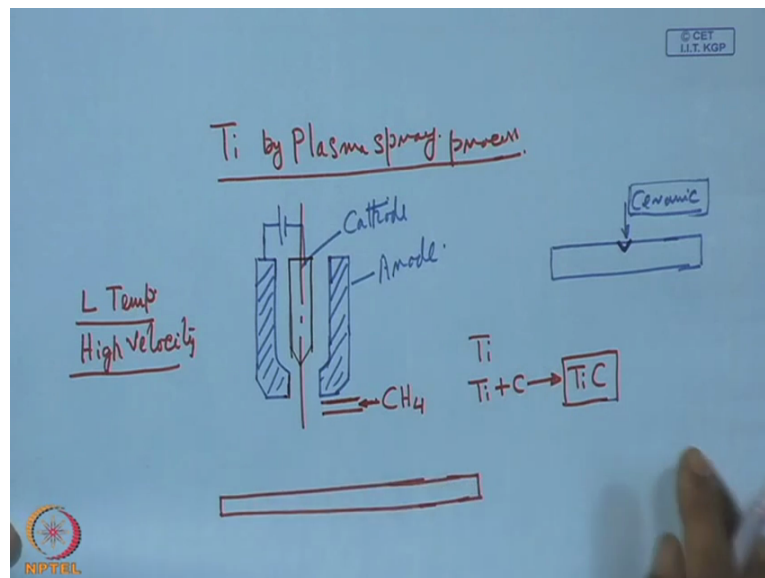 © CET
I.I.T. KGP
Ti by Plasma spray process.
Cathode
Anode.
Ceramic
L Temp
High Velocity
CH4
Ti
Ti + C → TiC
NPTEL